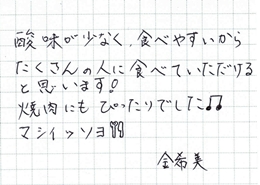 酸味が少なく、食べやすいから
たくさんの人に食べていただける
と思います!
焼肉にもぴったりでした♫
マシイッソヨ🍴
金希美